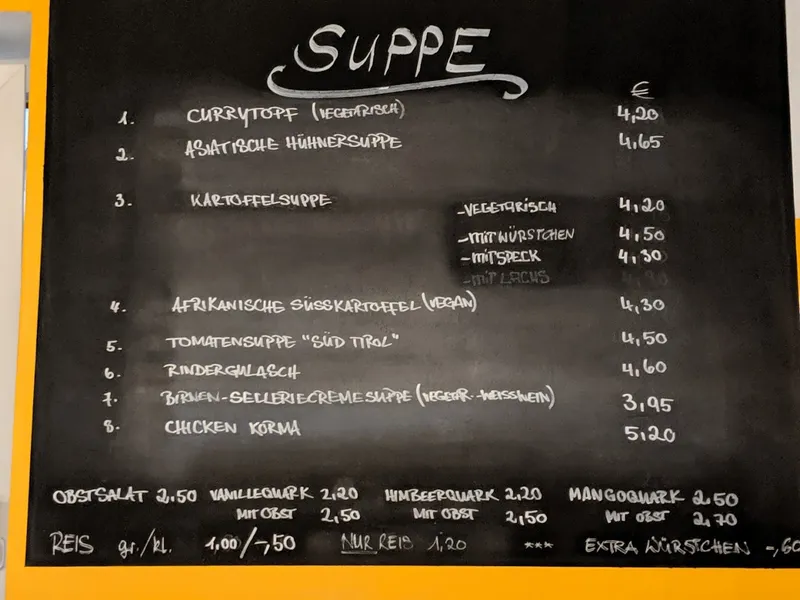 SUPPE
€
1. CURRYTOPF (VEGETARISCH) 4,20
2. ASIATISCHE HÜHNERSUPPE 4,65
3. KARTOFFELSUPPE -VEGETARISCH 4,20
-MIT WÜRSTCHEN 4,50
-MIT SPECK 4,30
-MIT LACHS 4,90
4. AFRIKANISCHE SÜSSKARTOFFEL (VEGAN) 4,30
5. TOMATENSUPPE "SÜD TIROL" 4,50
6. RINDERGULASCH 4,60
7. BIRNEN-SELLERIECREMESUPPE (VEGETAR.-WEISSWEIN) 3,95
8. CHICKEN KORMA 5,20
OBSTSALAT 2.50 VANILLEQUARK 2,20 HIMBEERQUARK 2,20 MANGOQUARK 2.50
MIT OBST 2,50 MIT OBST 2,50 MIT OBST 2,70
REIS gr./kl. 1,00/-,50 NUR REIS 1,20 *** EXTRA WÜRSTCHEN -,60